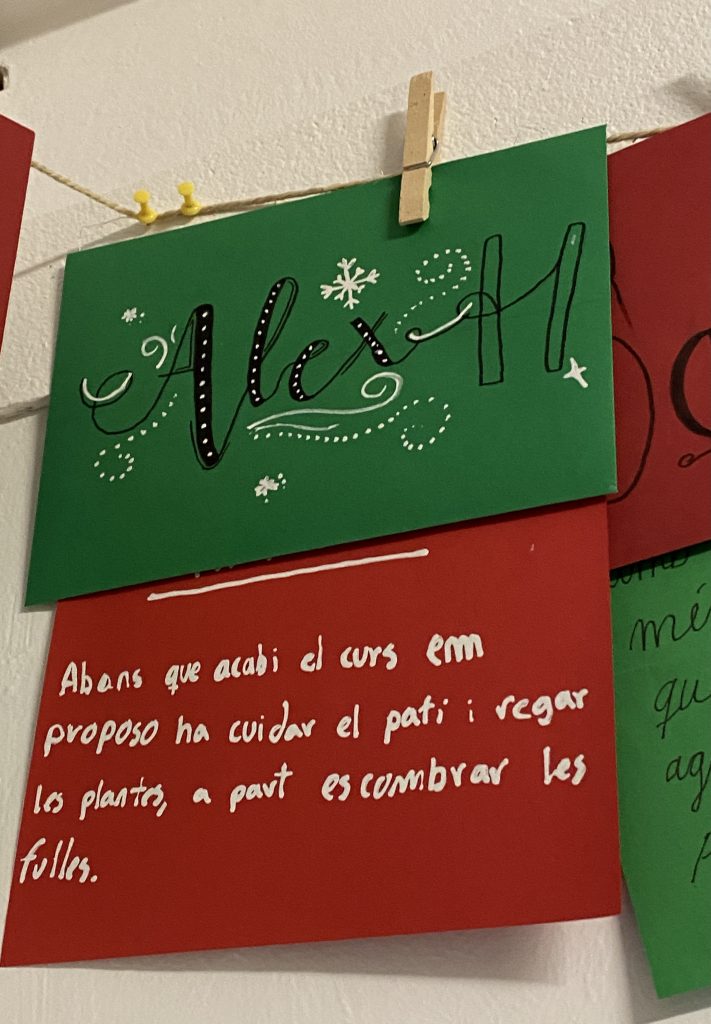 Alex H
Abans que acabi el curs emm
proposo ha cuidar el pati i regar
les plantes, a part escombrar les
fulles.
mé
qu
ag